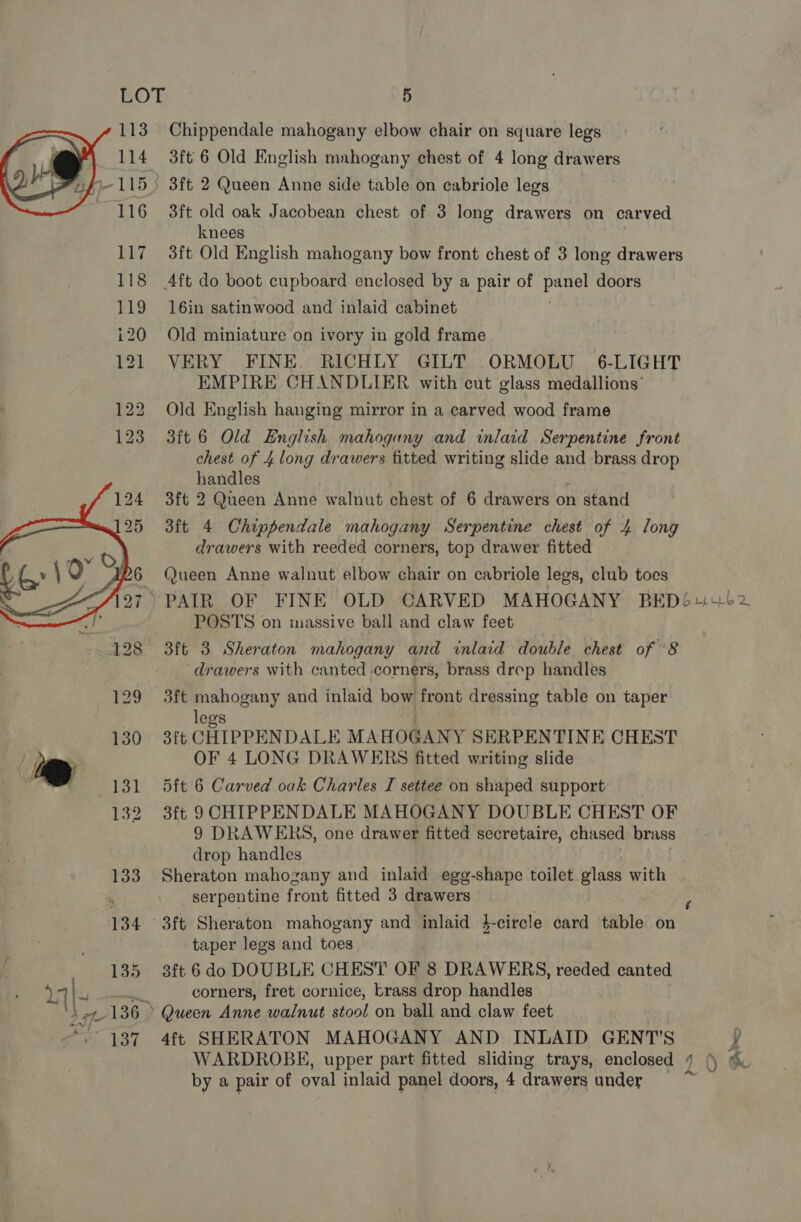 LOT 5
113 Chippendale mahogany elbow chair on square legs
114 3ft 6 Old English mahogany chest of 4 long drawers
115 3ft 2 Queen Anne side table on cabriole legs
116 3ft old oak Jacobean chest of 3 long drawers on carved
knees
117 3ft Old English mahogany bow front chest of 3 long drawers
118 4ft do boot cupboard enclosed by a pair of panel doors
119 16in satinwood and inlaid cabinet
120 Old miniature on ivory in gold frame
121 VERY FINE RICHLY GILT ORMOLU 6-LIGHT
EMPIRE CHANDLIER with cut glass medallions
122 Old English hanging mirror in a carved wood frame
123 3ft 6 Old English mahogany and inlaid Serpentine front
chest of 4 long drawers fitted writing slide and brass drop
handles
124 3ft 2 Queen Anne walnut chest of 6 drawers on stand
125 3ft 4 Chippendale mahogany Serpentine chest of 4 long
drawers with reeded corners, top drawer fitted
£6 10 126 Queen Anne walnut elbow chair on cabriole legs, club toes
127 PAIR OF FINE OLD CARVED MAHOGANY BED
POSTS on massive ball and claw feet
128 3ft 3 Sheraton mahogany and inlaid double chest of 8
drawers with canted corners, brass drop handles
129 3ft mahogany and inlaid bow front dressing table on taper
legs
130 3ft CHIPPENDALE MAHOGANY SERPENTINE CHEST
OF 4 LONG DRAWERS fitted writing slide
131 5ft 6 Carved oak Charles I settee on shaped support
132 3ft 9 CHIPPENDALE MAHOGANY DOUBLE CHEST OF
9 DRAWERS, one drawer fitted secretaire, chased brass
drop handles
133 Sheraton mahogany and inlaid egg-shape toilet glass with
serpentine front fitted 3 drawers
134 3ft Sheraton mahogany and inlaid ½-circle card table on
taper legs and toes
135 3ft 6 do DOUBLE CHEST OF 8 DRAWERS, reeded canted
corners, fret cornice, brass drop handles
136 Queen Anne walnut stool on ball and claw feet
137 4ft SHERATON MAHOGANY AND INLAID GENT'S
WARDROBE, upper part fitted sliding trays, enclosed
by a pair of oval inlaid panel doors, 4 drawers under